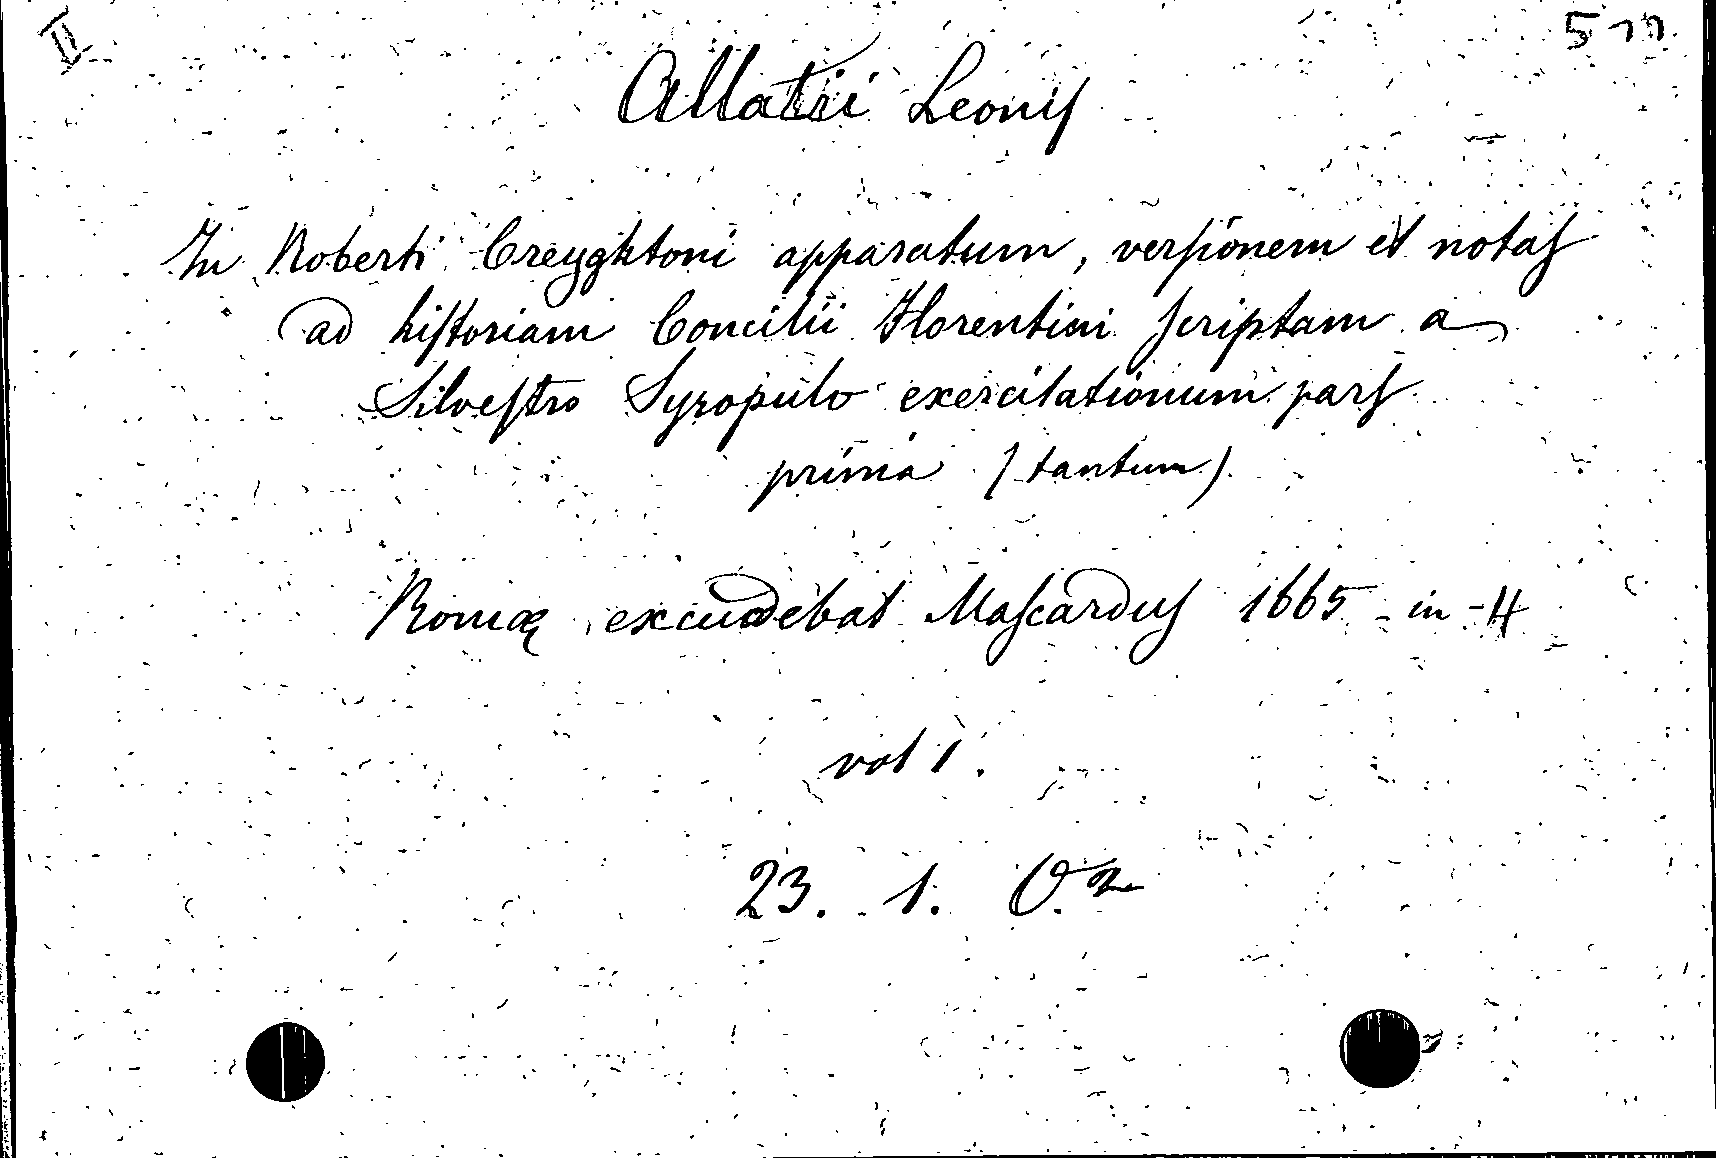 II
Allatii Leonis
In Roberti Creyghtoni apparatum, versionem et notas
ad historiam Concilii Florentini scriptam a
Silvestro Syropulo exercitationum pars
prima (tantum)
Romæ excudebat Mascardus 1665 - in-4
vol 1.
23. 1. O.